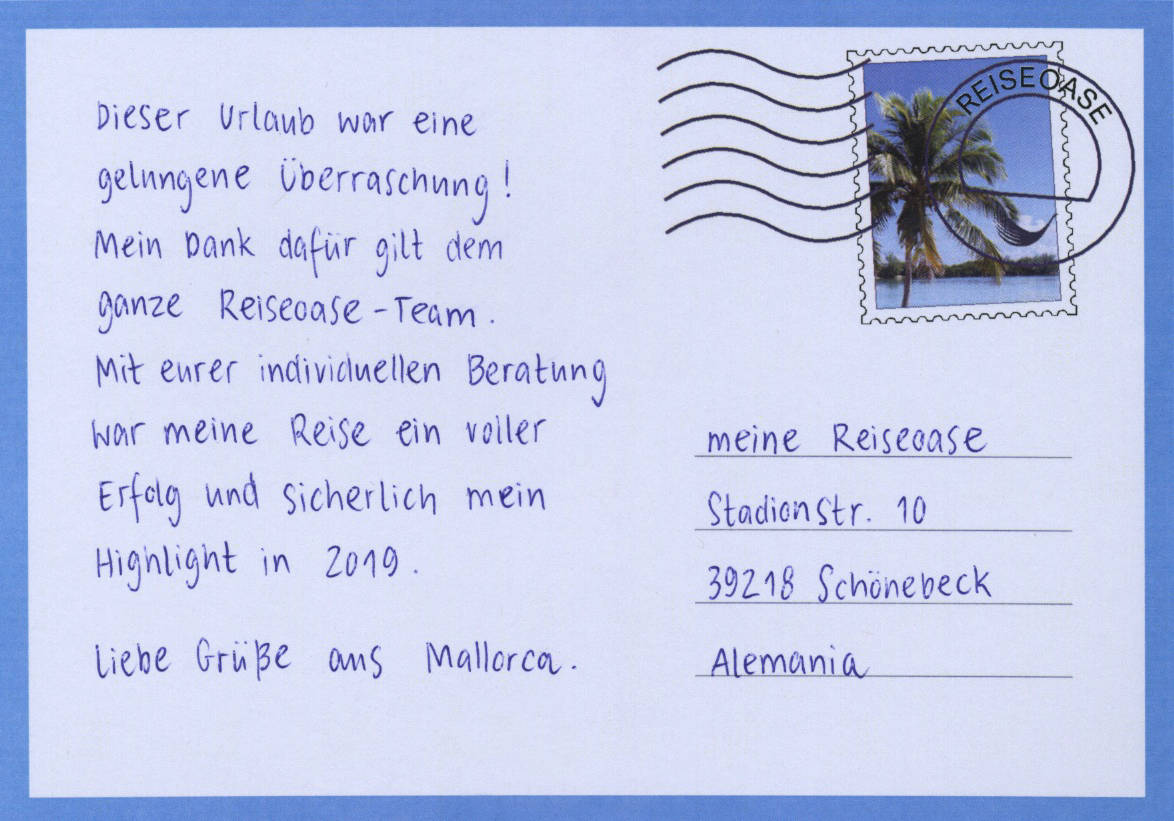 Dieser Urlaub war eine
gelungene Überraschung!
Mein Dank dafür gilt dem
ganze Reiseoase-Team.
Mit eurer individuellen Beratung
war meine Reise ein voller
Erfolg und sicherlich mein
Highlight in 2019.
Liebe Grüße aus Mallorca.
REISEOASE
meine Reiseoase
Stadionstr. 10
39218 Schönebeck
Alemania